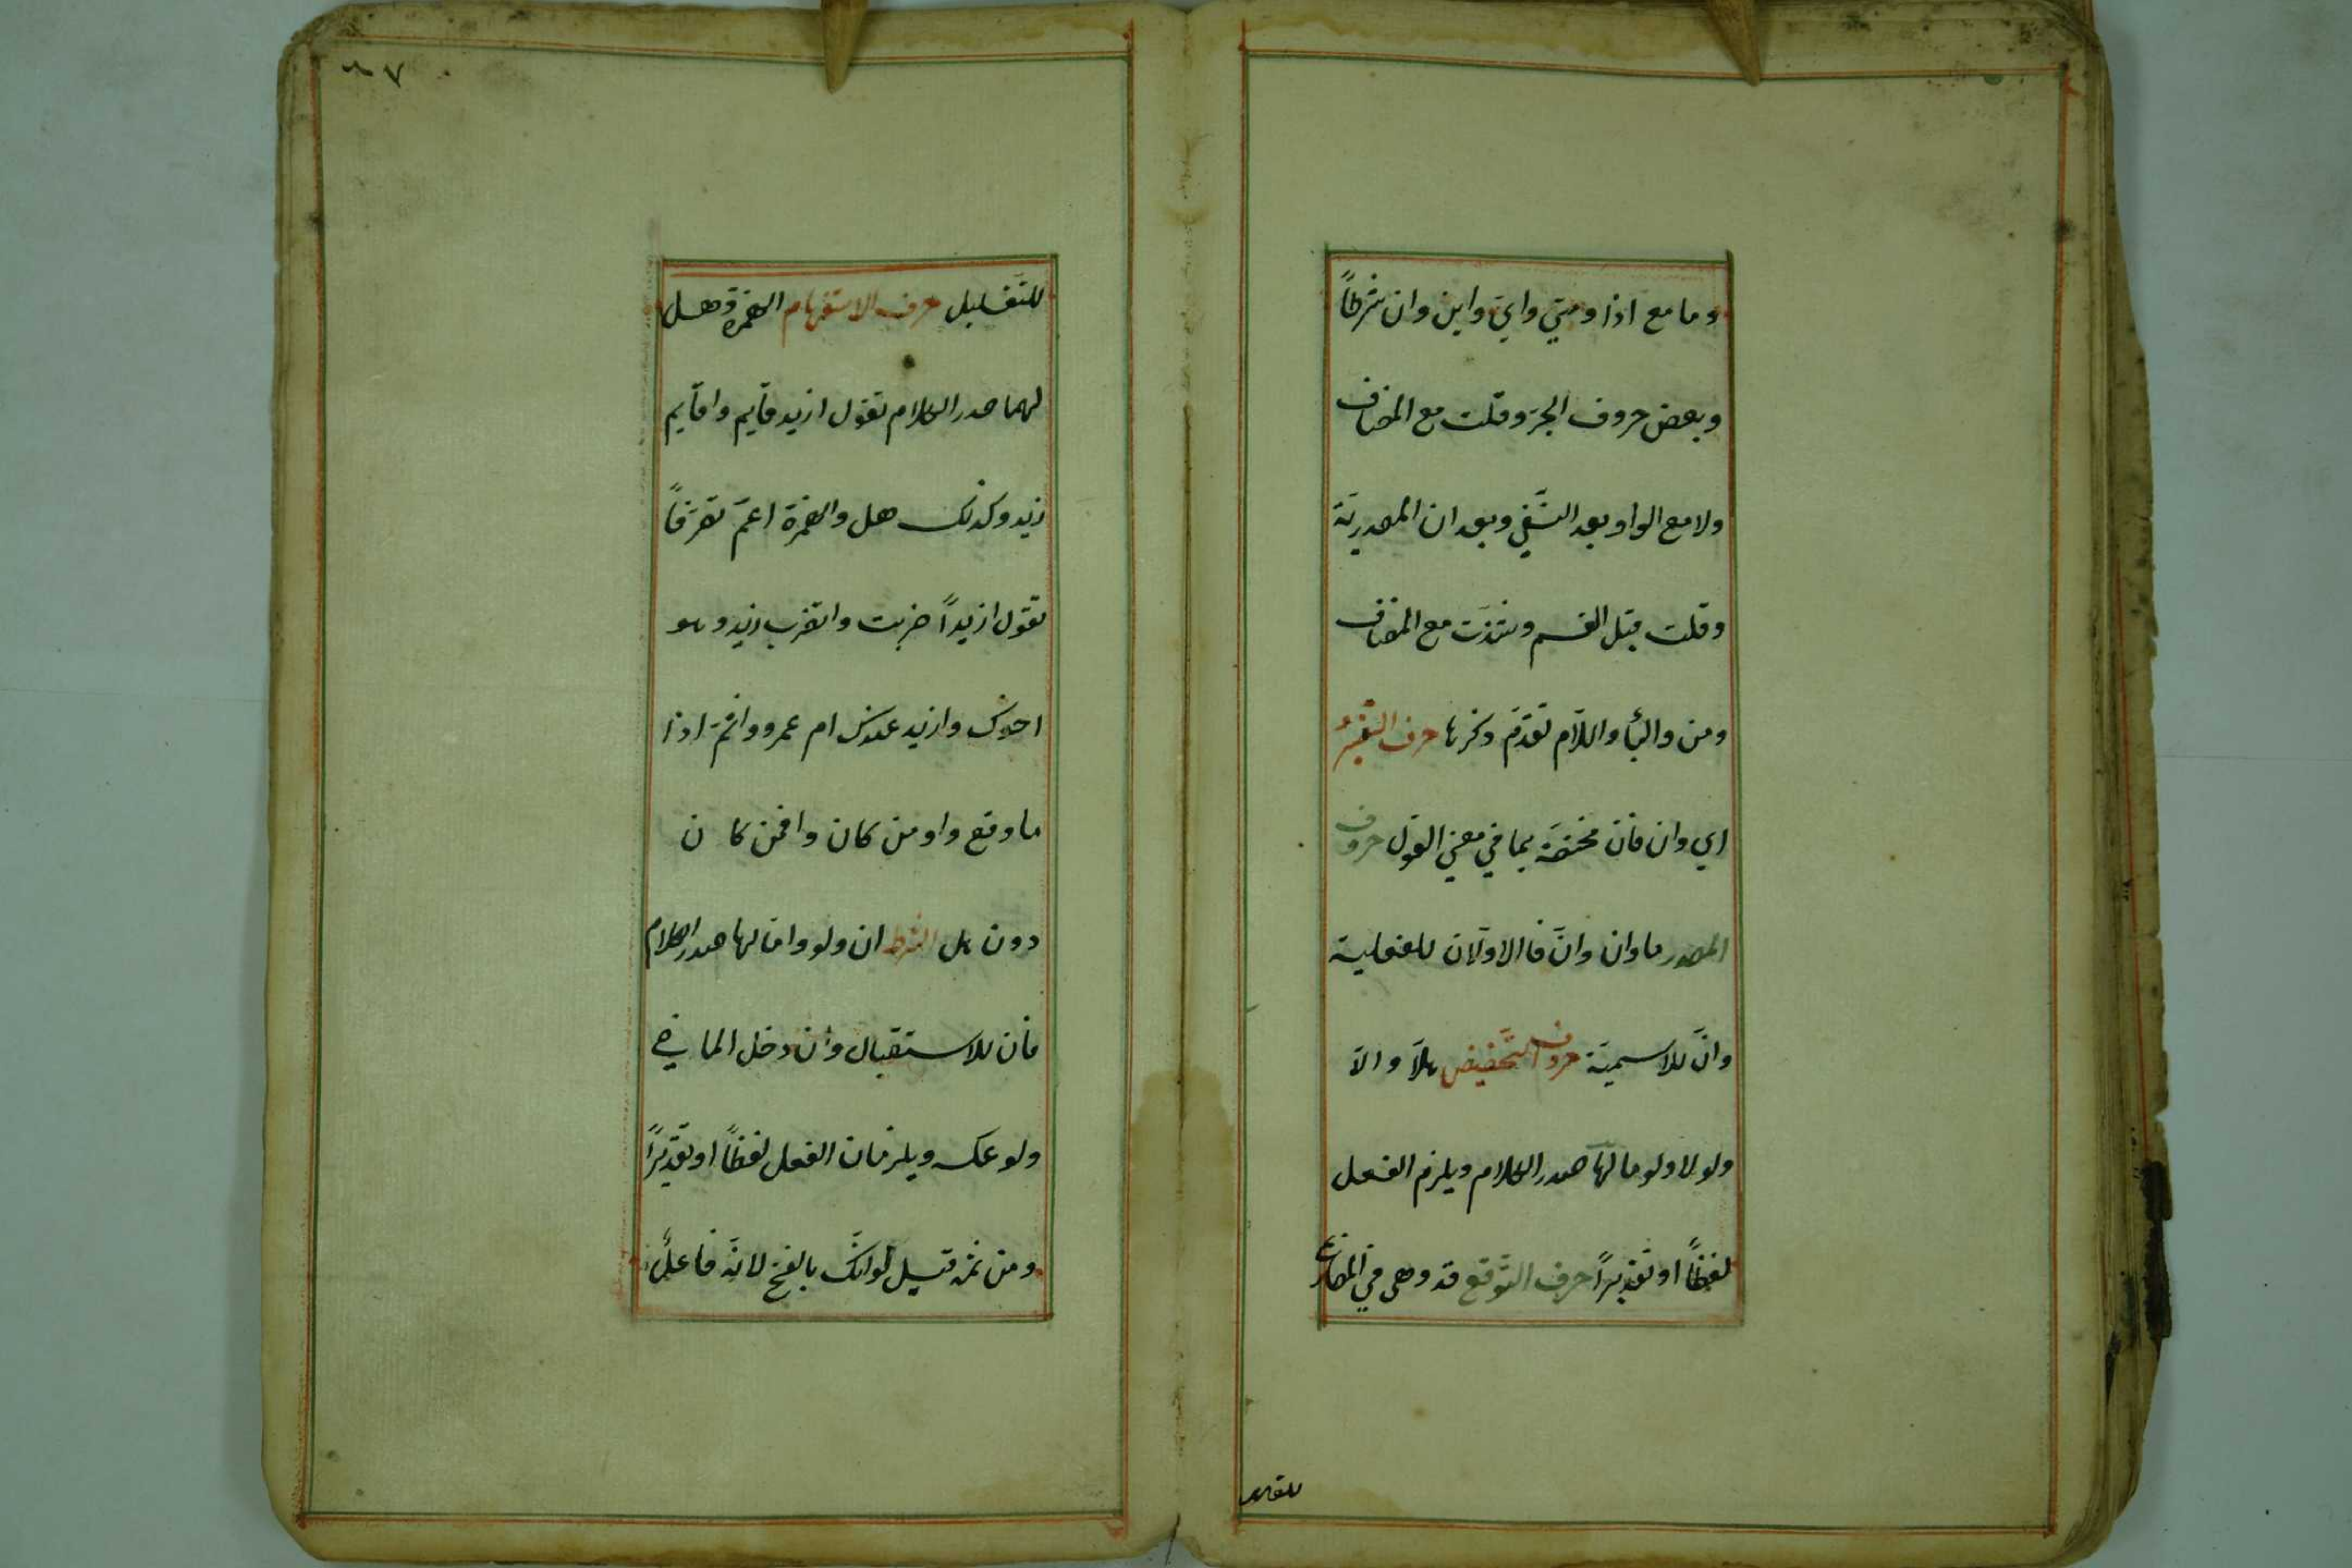 وما مع اذا ومتي واي واين وان شرطاً
وبعض حروف الجرّ وقلت مع المضاف
ولا مع الواو بعد النّفي وبعد ان المصدريّة
وقلت قبل القسم وشذّت مع المضاف
ومن والبأ واللّام تقدّم ذكرها حرف التّفسير
اي وان فان مختصّة بما في معني القول حروف
المصدر ما وان وانّ فالاوّلان للفعلية
وانّ للاسميّة حروف التّحضيض هلّا والّا
ولولا ولوما لها صدر الكلام ويلزم الفعل
لفظاً او تقديراً حرف التّوقع قد وهى في المضارع
للتقليل
٨٧
للتّقليل حرف الاستفهام الهمزة وهل
لهما صدر الكلام تقول ازيد قايم واقايم
زيد وكذلك هل والهمزة اعمّ تصرّفاً
تقول ازيداً ضربت واتضرب زيد وهو
اخوك وازيد عندك ام عمرو واثمّ اذا
ما وقع واو من كان وافمن كان
دون هل الشرط ان ولو واما لها صدر الكلام
فان للاستقبال وان دخل الماضي
ولو عكسه ويلزمان الفعل لفظاً او تقديراً
ومن ثمّه قيل لو انّك بالفتح لانّه فاعل